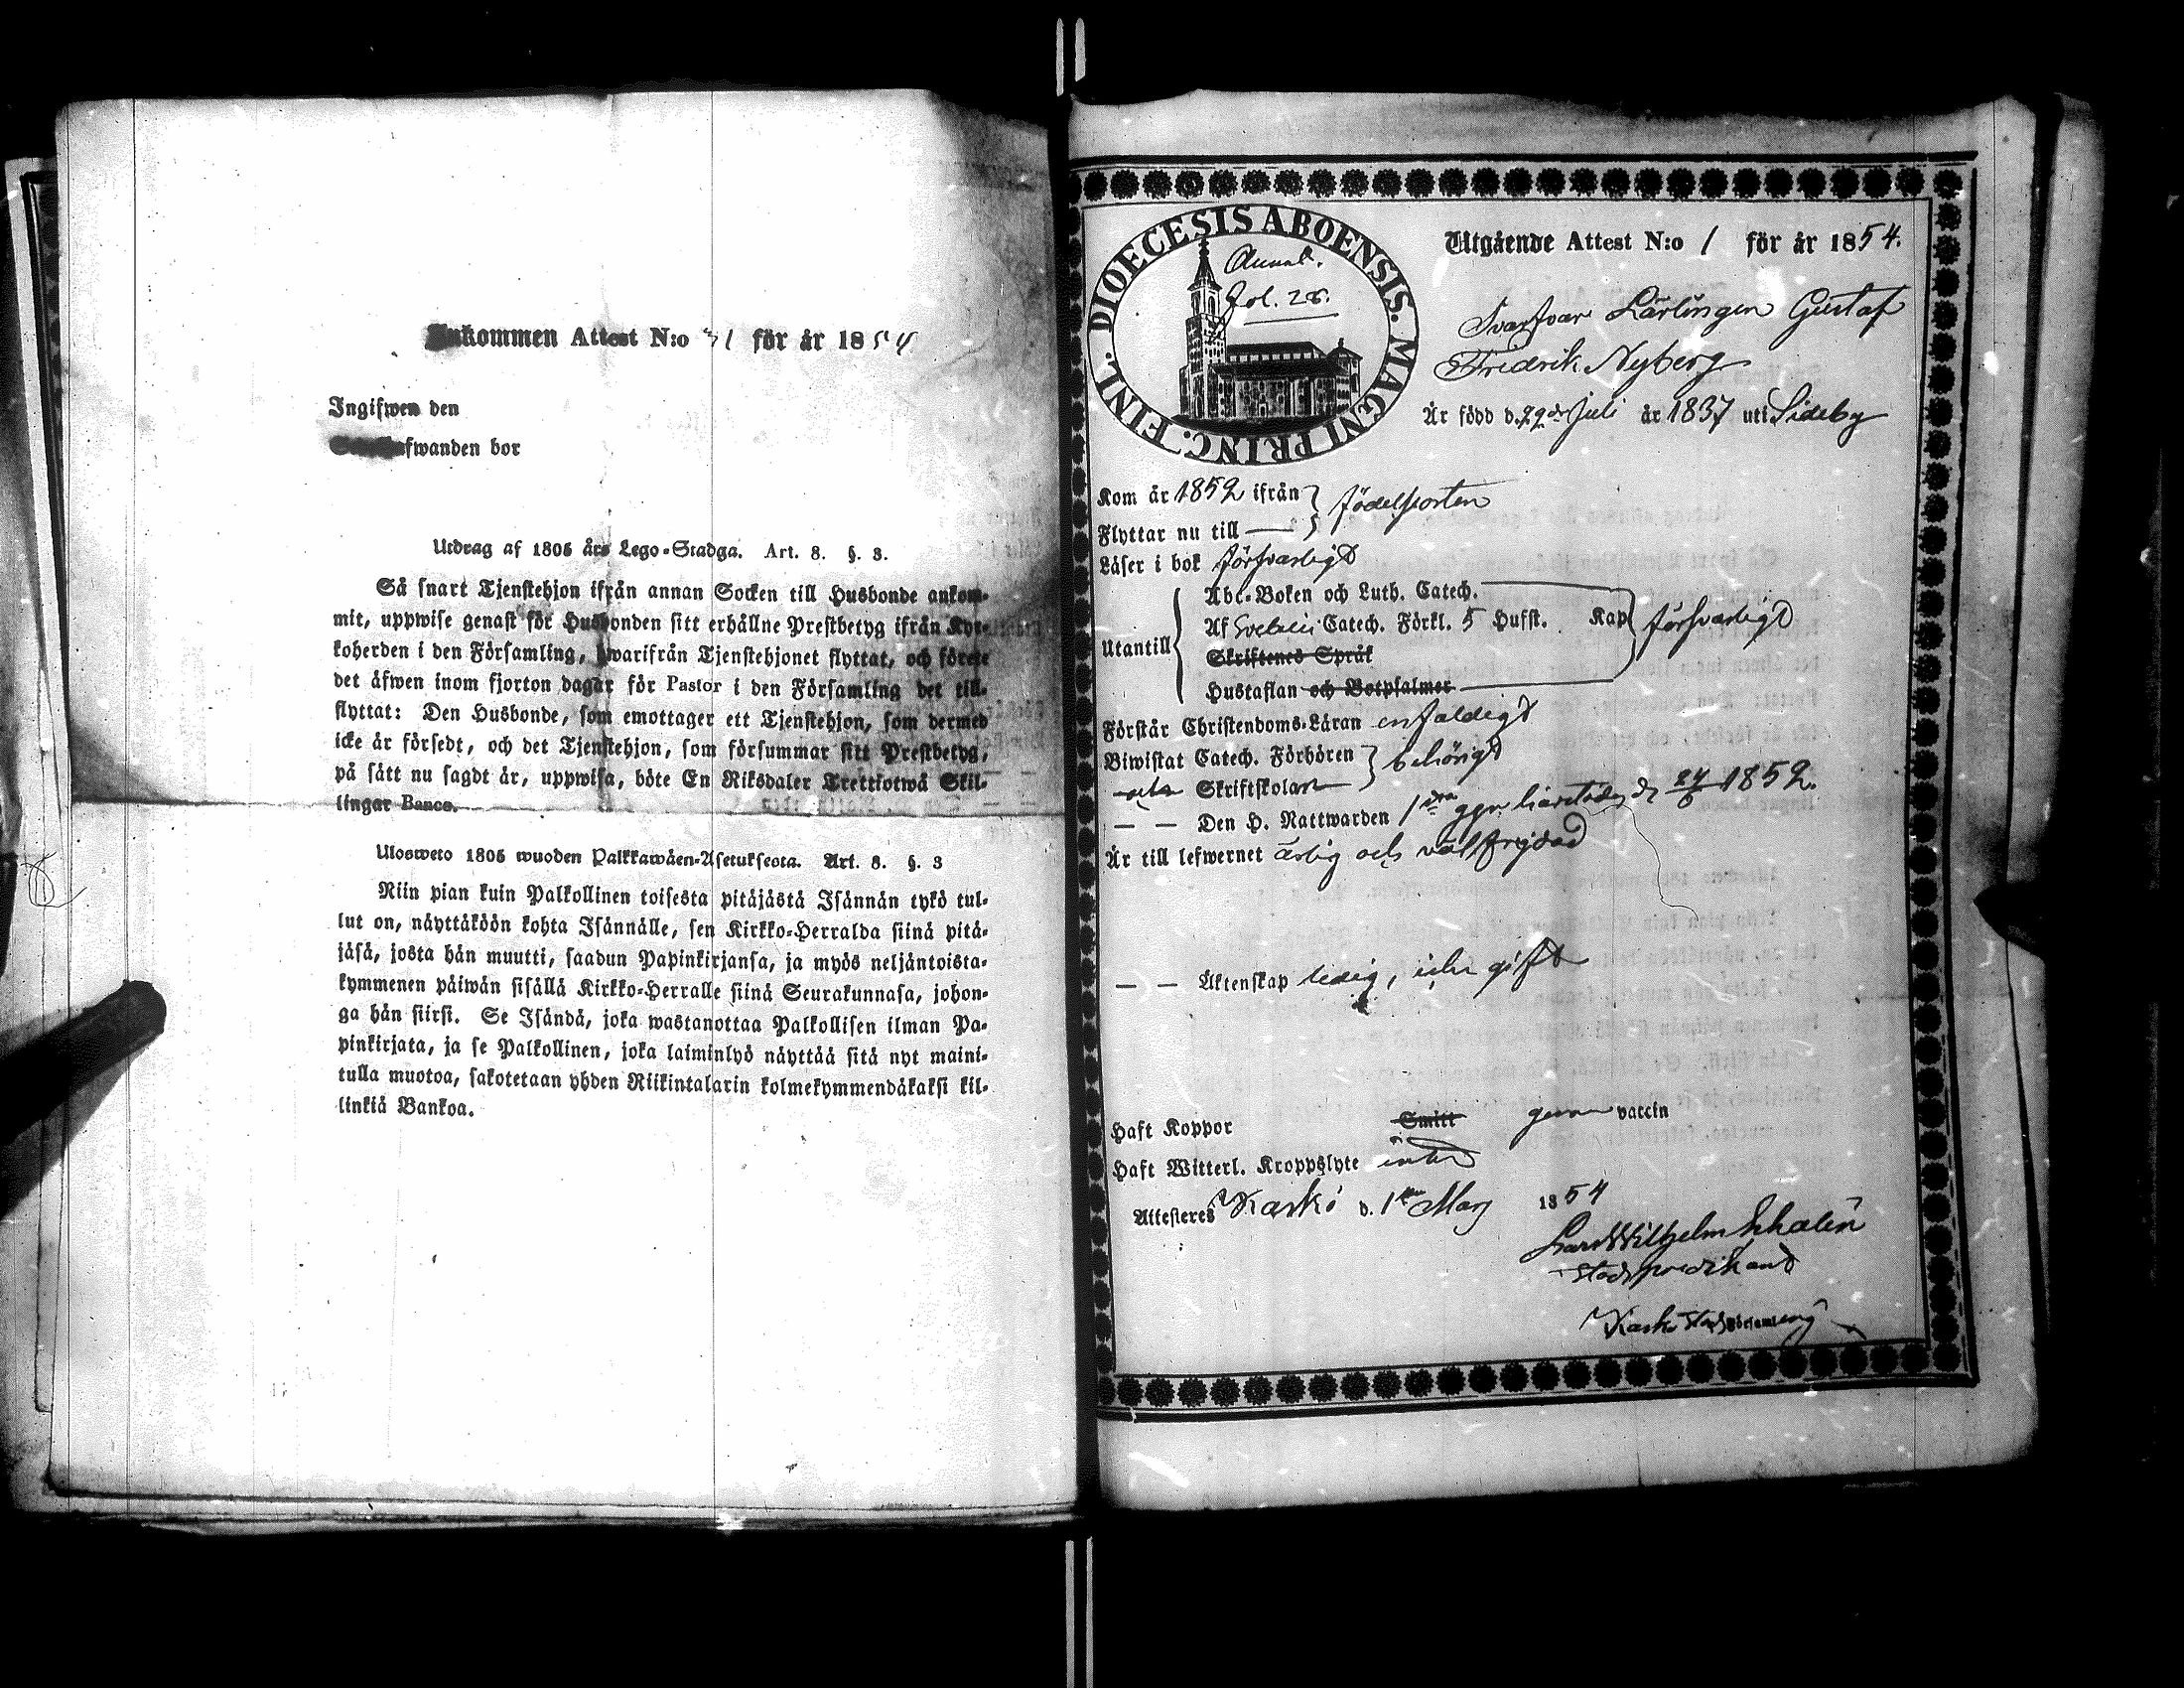 Ankommen Attest N:o 31 för år 1854
Ingifwen den
fwanden bor
Utdrag af 1805 års Lego-Stadga. Art. 8. §. 3.
Så snart Tjenstehjon ifrån annan Socken till Husbonde ankom-
mit, uppwise genast för Husbonden sitt erhållne Prestbetyg ifrån Kyr-
koherden i den Församling, hwarifrån Tjenstehjonet flyttat, och förete
det äfwen inom fjorton dagar för Pastor i den Församling det till-
flyttat: Den Husbonde, som emottager ett Tjenstehjon, som dermed
icke är försedt, och det Tjenstehjon, som försummar sitt Prestbetyg,
på sätt nu sagdt är, uppwisa, böte En Riksdaler Trettiotwå Skil-
lingar Banco.
Ulosweto 1805 wuoden Palkkawäen-Asetuksesta. Art. 8. §. 3
Niin pian kuin Palkollinen toisesta pitäjästä Isännän tykö tul-
lut on, näyttäköön kohta Isännälle, sen Kirkko-Herralda siinä pitä-
jäsä, josta hän muutti, saadun Papinkirjansa, ja myös neljäntoista-
kymmenen päiwän sisällä Kirkko-Herralle siinä Seurakunnasa, johon-
ga hän siirsi. Se Isändä, joka wastanottaa Palkollisen ilman Pa-
pinkirjata, ja se Palkollinen, joka laiminlyö näyttää sitä nyt maini-
tulla muotoa, sakotetaan yhden Riikintalarin kolmekymmendäkaksi kil-
linkiä Bankoa.
DIOECESIS ABOENSIS. MAGNI PRINC. FINL.
Annot.
Fol. 28.
Utgående Attest N:o 1 för år 1854.
Svarfvar Lärlingen Gustaf
Fridrik Nyberg
Är född d. 29de Juli år 1837 uti Sideby
Kom år 1852 ifrån } födelseorten
Flyttar nu till
Läser i bok försvarligt
Utantill
Abc-Boken och Luth. Catech.
Af Svebelii Catech. Förkl. 5 Hufst. Kap försvarligt
Skriftenes Språk
Hustaflan och Botpsalmer
Förstår Christendoms-Läran enfaldigt
Biwistat Catech. Förhören } behörigt
Skriftskolan
— — Den H. Nattwarden 1sta ggn 24/6 1852.
Är till lefwernet ärlig och välfrejdad
— — Äktenskap ledig, icke gift
Haft Koppor Smitt genom vaccin
Haft Witterl. Kroppslyte intet
Attesteres Kaskö d. 1 Mars 1854
Lars Wilhelm
Stadspredikant
Kaskö Stads Församling